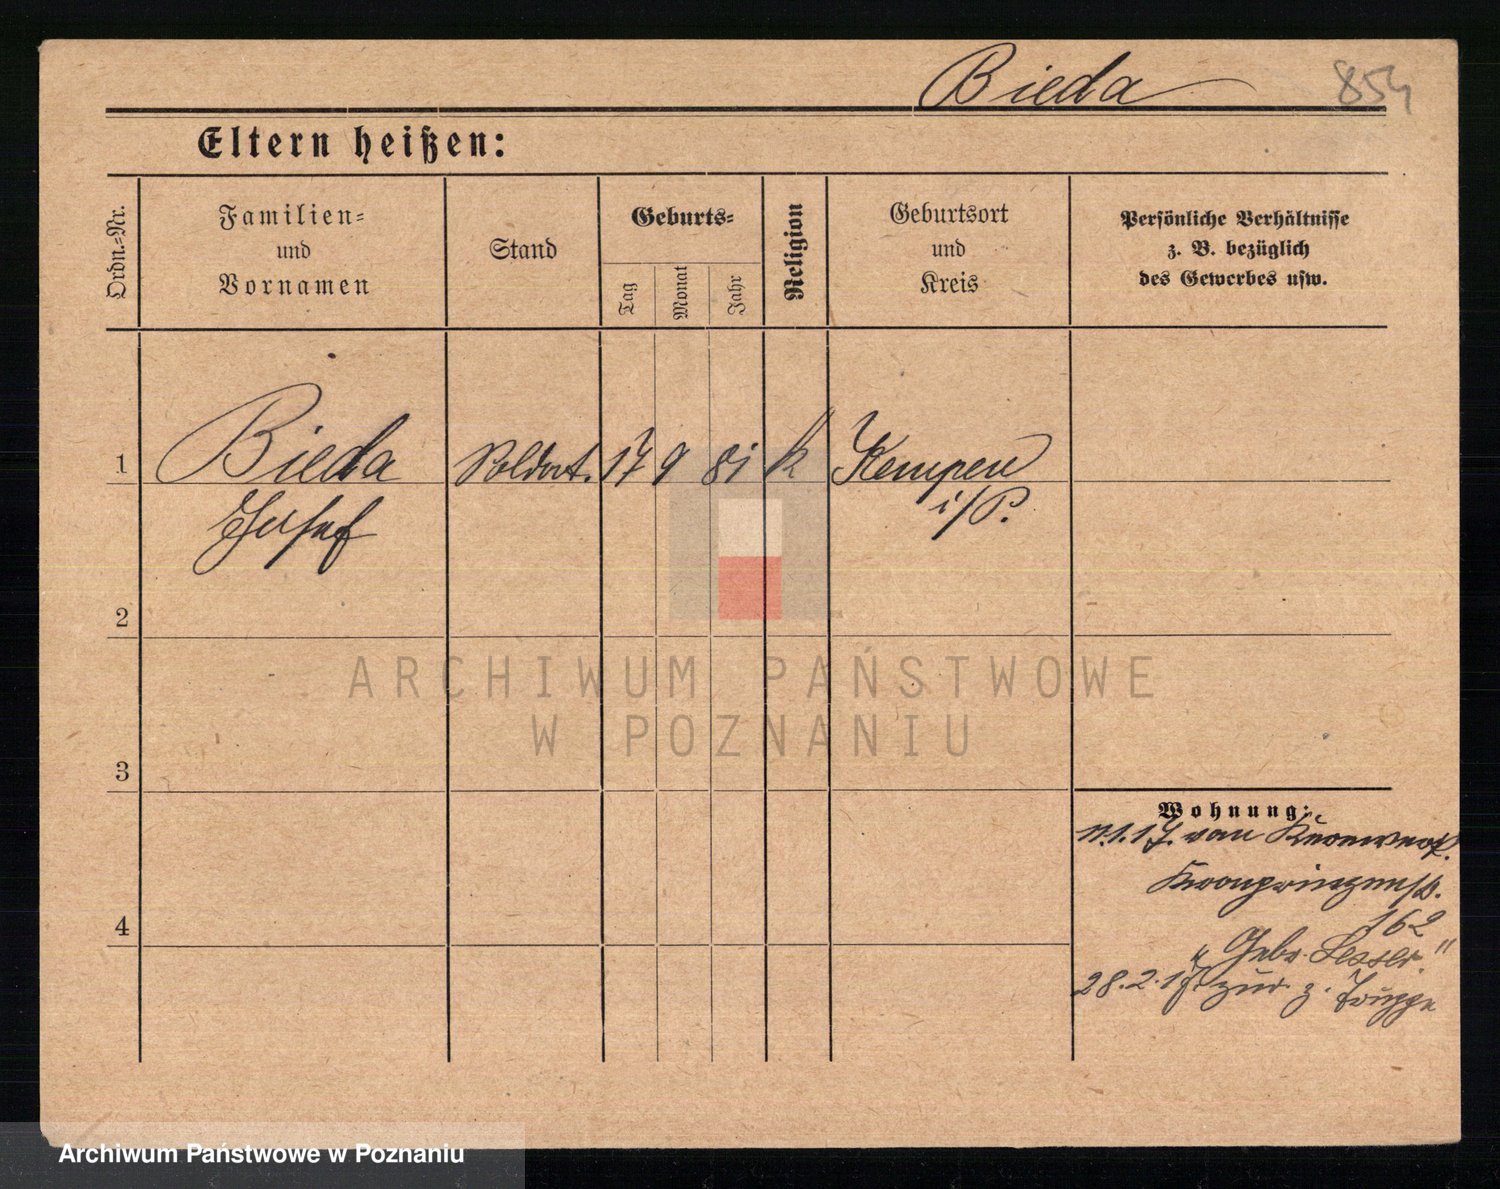 Bieda 854
Eltern heißen:
Ordn.-Nr.
Familien-
und
Vornamen
Stand
Geburts-
Tag
Monat
Jahr
Religion
Geburtsort
und
Kreis
Persönliche Verhältnisse
z. B. bezüglich
des Gewerbes usw.
1 Bieda Soldat. 17 9 81 k Kempen
Josef i/P.
2
3
4
Wohnung:
11.1.17. von
Kronprinzenstr.
162
"Gebr. Lesser."
28.2.17 zur. z. Truppe
ARCHIWUM PAŃSTWOWE
W POZNANIU
Archiwum Państwowe w Poznaniu